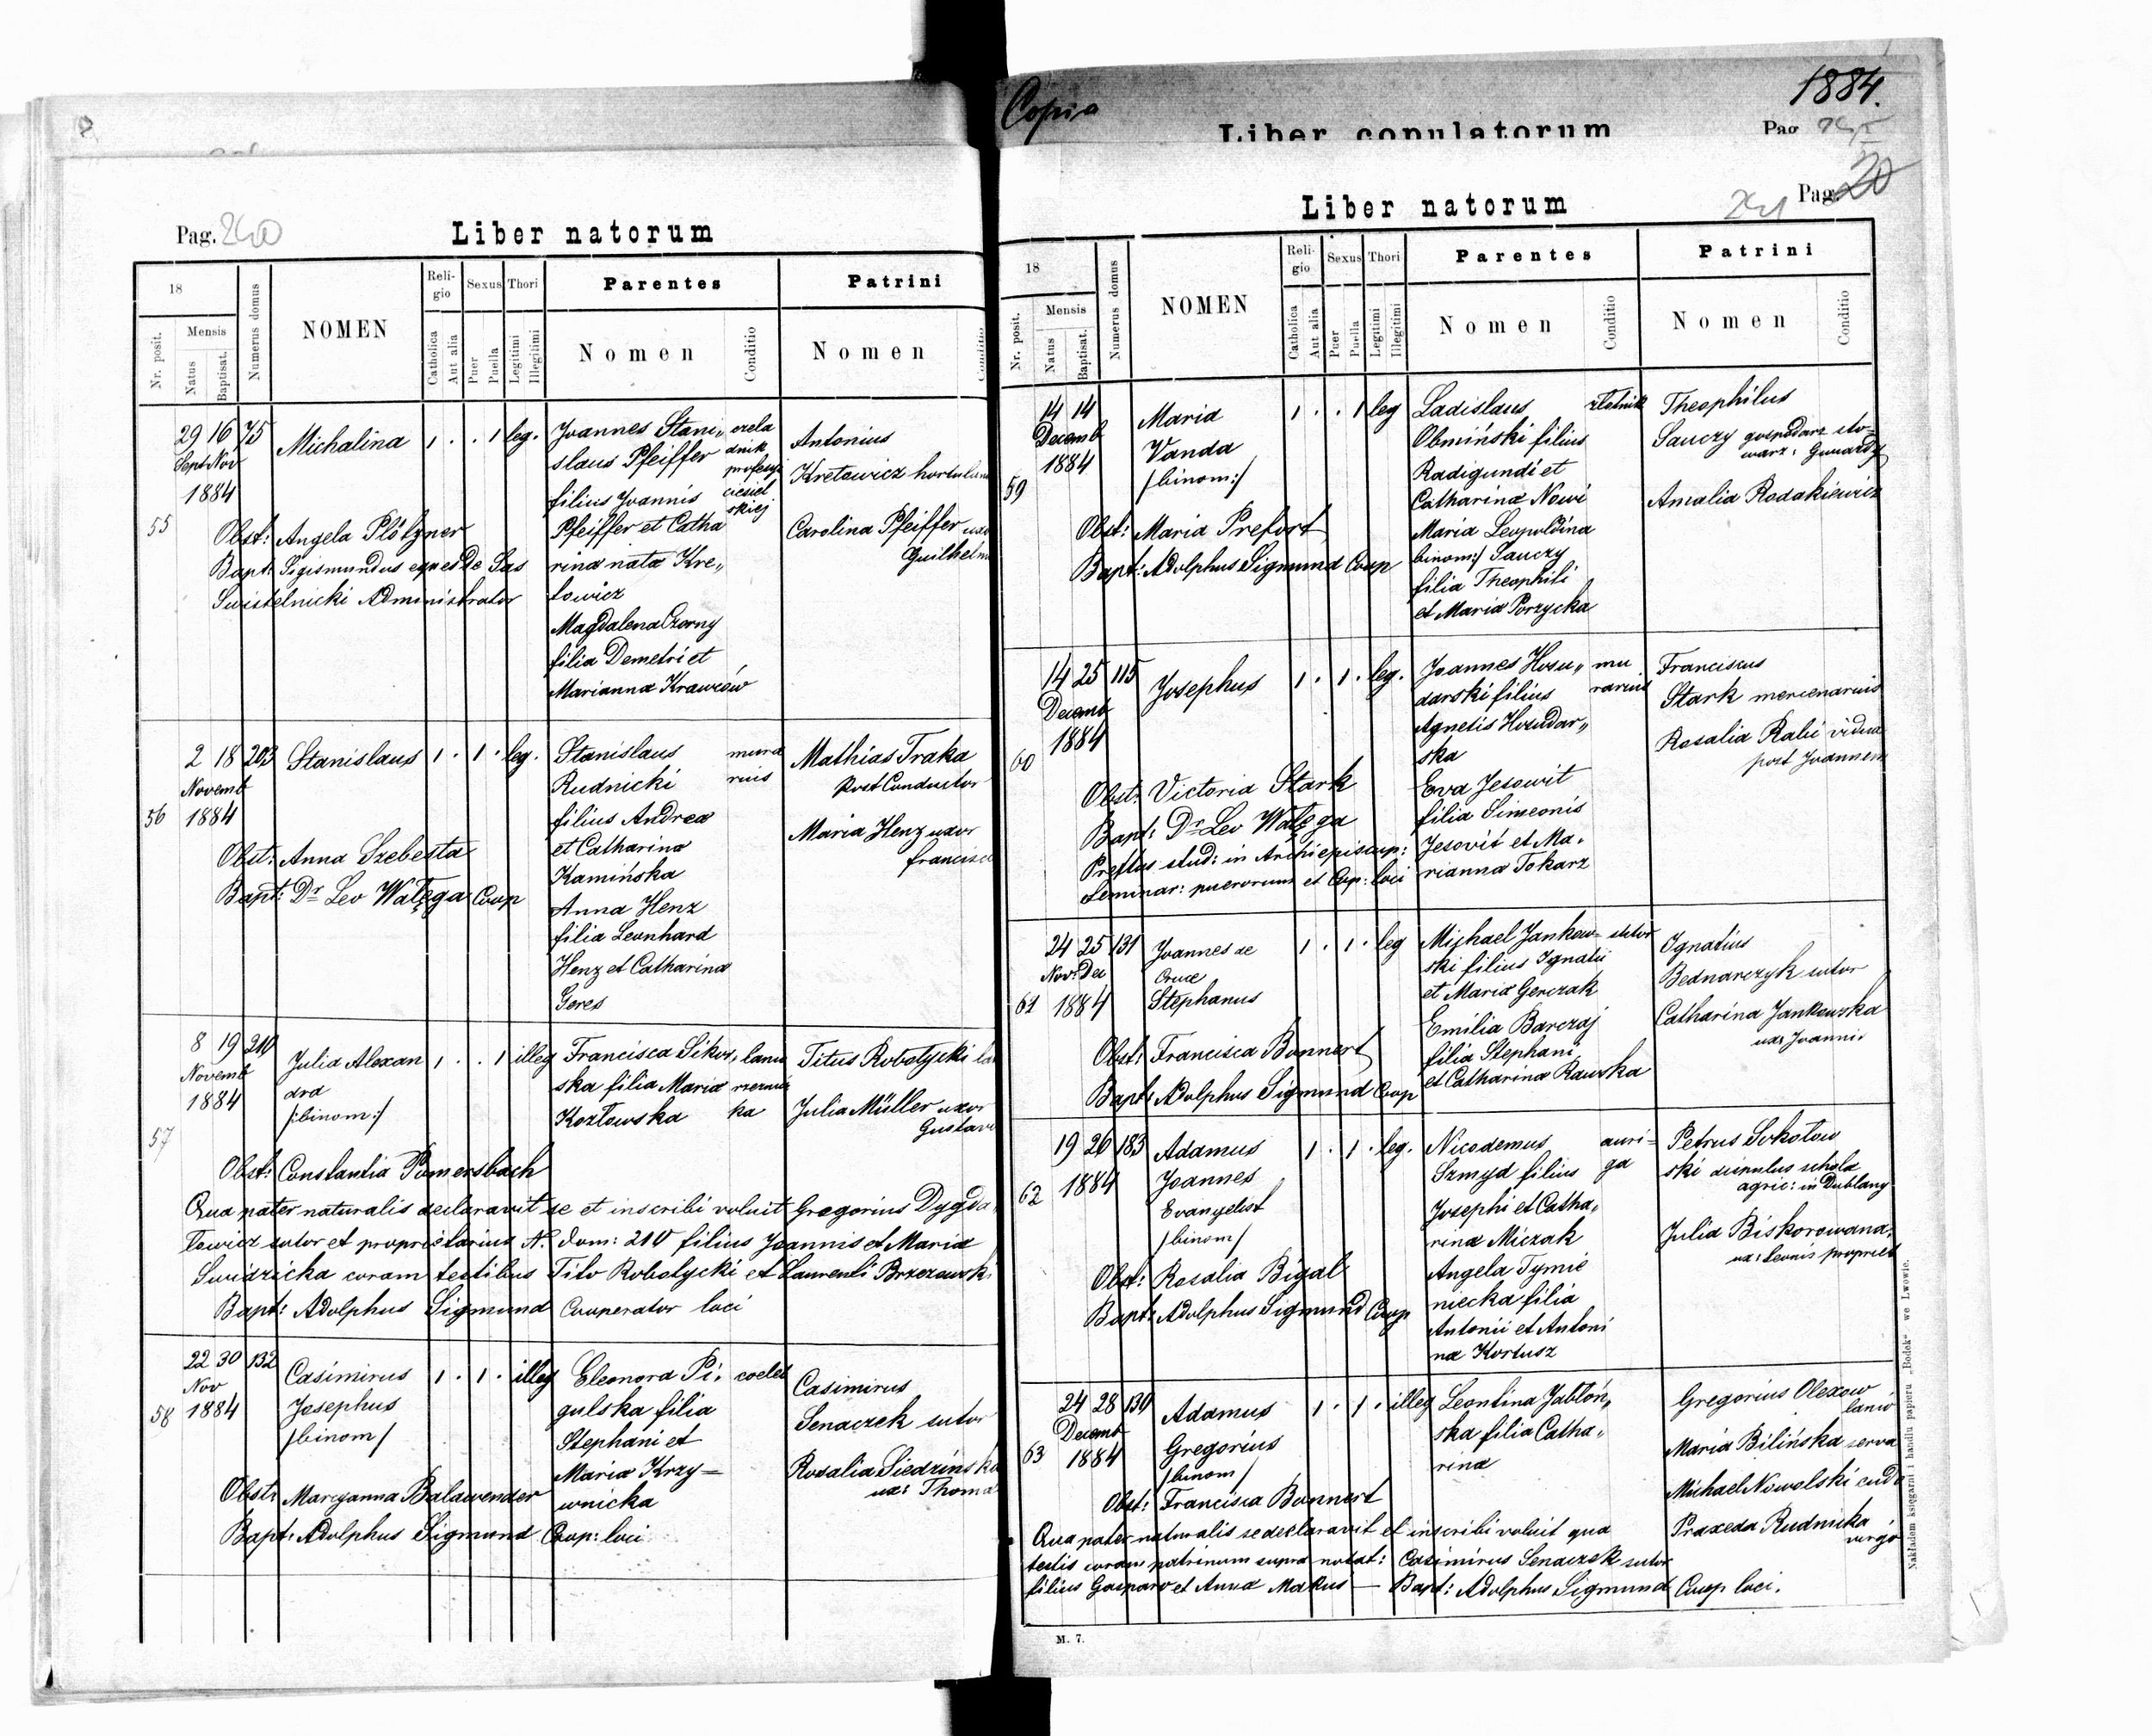 Copia
1884.
Liber copulatorum
Pag
Pag. 240
Liber natorum
18
Nr. posit.
Mensis
Natus
Baptisat.
Numerus domus
NOMEN
Reli-
gio
Catholica
Aut alia
Sexus
Puer
Puella
Thori
Legitimi
Illegitimi
Parentes
Nomen
Conditio
Patrini
Nomen
55
29 16 75
Sept Nov
1884
Michalina
1 . . 1 leg.
Joannes Stani„
slaus Pfeiffer
filius Joannis
Pfeiffer et Catha
rina nata Kre„
towicz
Magdalena Czorny
filia Demetri et
Marianna Krawców
czela
dnik
profesyi
ciesiel
skiej
Antonius
Kretowicz hortulan
Carolina Pfeiffer uxo
Guilhelm
Obst: Angela Plötzner
Bapt: Sigismundus eques de Sas
Swistelnicki Administrator
56
2 18 203
Novemb
1884
Stanislaus
1 . 1 . leg.
Stanislaus
Rudnicki
filius Andrea
et Catharina
Kamińska
Anna Henz
filia Leonhard
Henz et Catharina
Geres
mura
rius
Mathias Traka
Post Conductor
Maria Henz uxor
francisc
Obst: Anna Szebesta
Bapt: Dr Leo Wałęga Coop
57
8 19 210
Novemb
1884
Julia Alexan
dra
/:binom:/
1 . . 1 illeg
Francisca Sikor„
ska filia Maria
Kozłowska
Titus Robotycki
Julia Müller uxor
Gustavi
Obst: Constantia Pomersbach
Qua pater naturalis declaravit se et inscribi voluit Gregorius Dygda
lewicz sutor et proprietarius N. dom: 210 filius Joannis et Maria
Swidzicka coram testibus Tito Robotycki et Laurenti Brzezowski
Bapt: Adolphus Sigmund Cooperator loci
58
22 30 132
Nov
1884
Casimirus
Josephus
/binom/
1 . 1 . illeg
Eleonora Pi„
gulska filia
Stephani et
Maria Krzy=
wnicka
coeleb
Casimirus
Senaczek sutor
Rosalia Siedzińska
ux: Thoma
Obst: Maryanna Balawender
Bapt: Adolphus Sigmund Coop: loci
Liber natorum
241
Pag. 20
18
Nr. posit.
Mensis
Natus
Baptisat.
Numerus domus
NOMEN
Reli-
gio
Catholica
Aut alia
Sexus
Puer
Puella
Thori
Legitimi
Illegitimi
Parentes
Nomen
Conditio
Patrini
Nomen
Conditio
59
14 14
Decemb
1884
Maria
Vanda
/binom:/
1 . . 1 leg
Ladislaus
Obmiński filius
Radigundi et
Catharina Nowi
Maria Leopoldina
binom:/ Sauczy
filia Theophili
et Maria Porzycka
złotnik
Theophilus
Sauczy gospodarz sto=
warz:
Amalia Rodakiewicz
Obst: Maria Prefort
Bapt: Adolphus Sigmund Coop
60
14 25 115
Decemb
1884
Josephus
1 . 1 . leg.
Joannes Hosu„
darski filius
Agnetis Hosudar„
ska
Eva Jesowit
filia Simeonis
Jesovit et Ma„
rianna Tokarz
mu
rarius
Franciscus
Stark mercenarius
Rosalia Rabi vidua
post Joannem
Obst: Victoria Stark
Bapt: Dr Leo Wałęga
Preftus stud: in Archiepiscop:
Seminar: puerorum et Cop: loci
61
24 25 131
Nov: Dec
1884
Joannes de
Cruce
Stephanus
1 . 1 . leg
Michael Jankow=
ski filius Ignatii
et Maria Gerczak
Emilia Barczaj
filia Stephani
et Catharina Rawska
sutor
Ignatius
Bednarczyk sutor
Catharina Jankowska
ux: Joannis
Obst: Francisca Bonnert
Bapt: Adolphus Sigmund Coop
62
19 26 183
1884
Adamus
Joannes
Evangelist
/binom/
1 . 1 . leg.
Nicodemus
Szmyd filius
Josephi et Catha„
rina Miczak
Angela Tymie
niecka filia
Antonii et Antoni
na Kortusz
auri=
ga
Petrus Sokołow
ski discipulus schola
agric: in Dublany
Julia Biskorowana
ux: Leonis propriet
Obst: Rosalia Bigal
Bapt: Adolphus Sigmund Coop
63
24 28 130
Decemb
1884
Adamus
Gregorius
/binom/
1 . 1 . illeg
Leontina Jabłoń„
ska filia Catha„
rina
Gregorius Olexow
lanio
Maria Bilińska serva
Michael Nowolski
Praxeda Rudnicka
virgo
Obst: Francisca Bonnert
Qua pater naturalis se declaravit et inscribi voluit qua
testis coram patrinum supra notat: Casimirus Senaczek sutor
filius Gasparo et Anna Makus — Bapt: Adolphus Sigmund Coop loci.
M. 7.
Nakładem księgarni i handlu papieru „Bodek" we Lwowie.